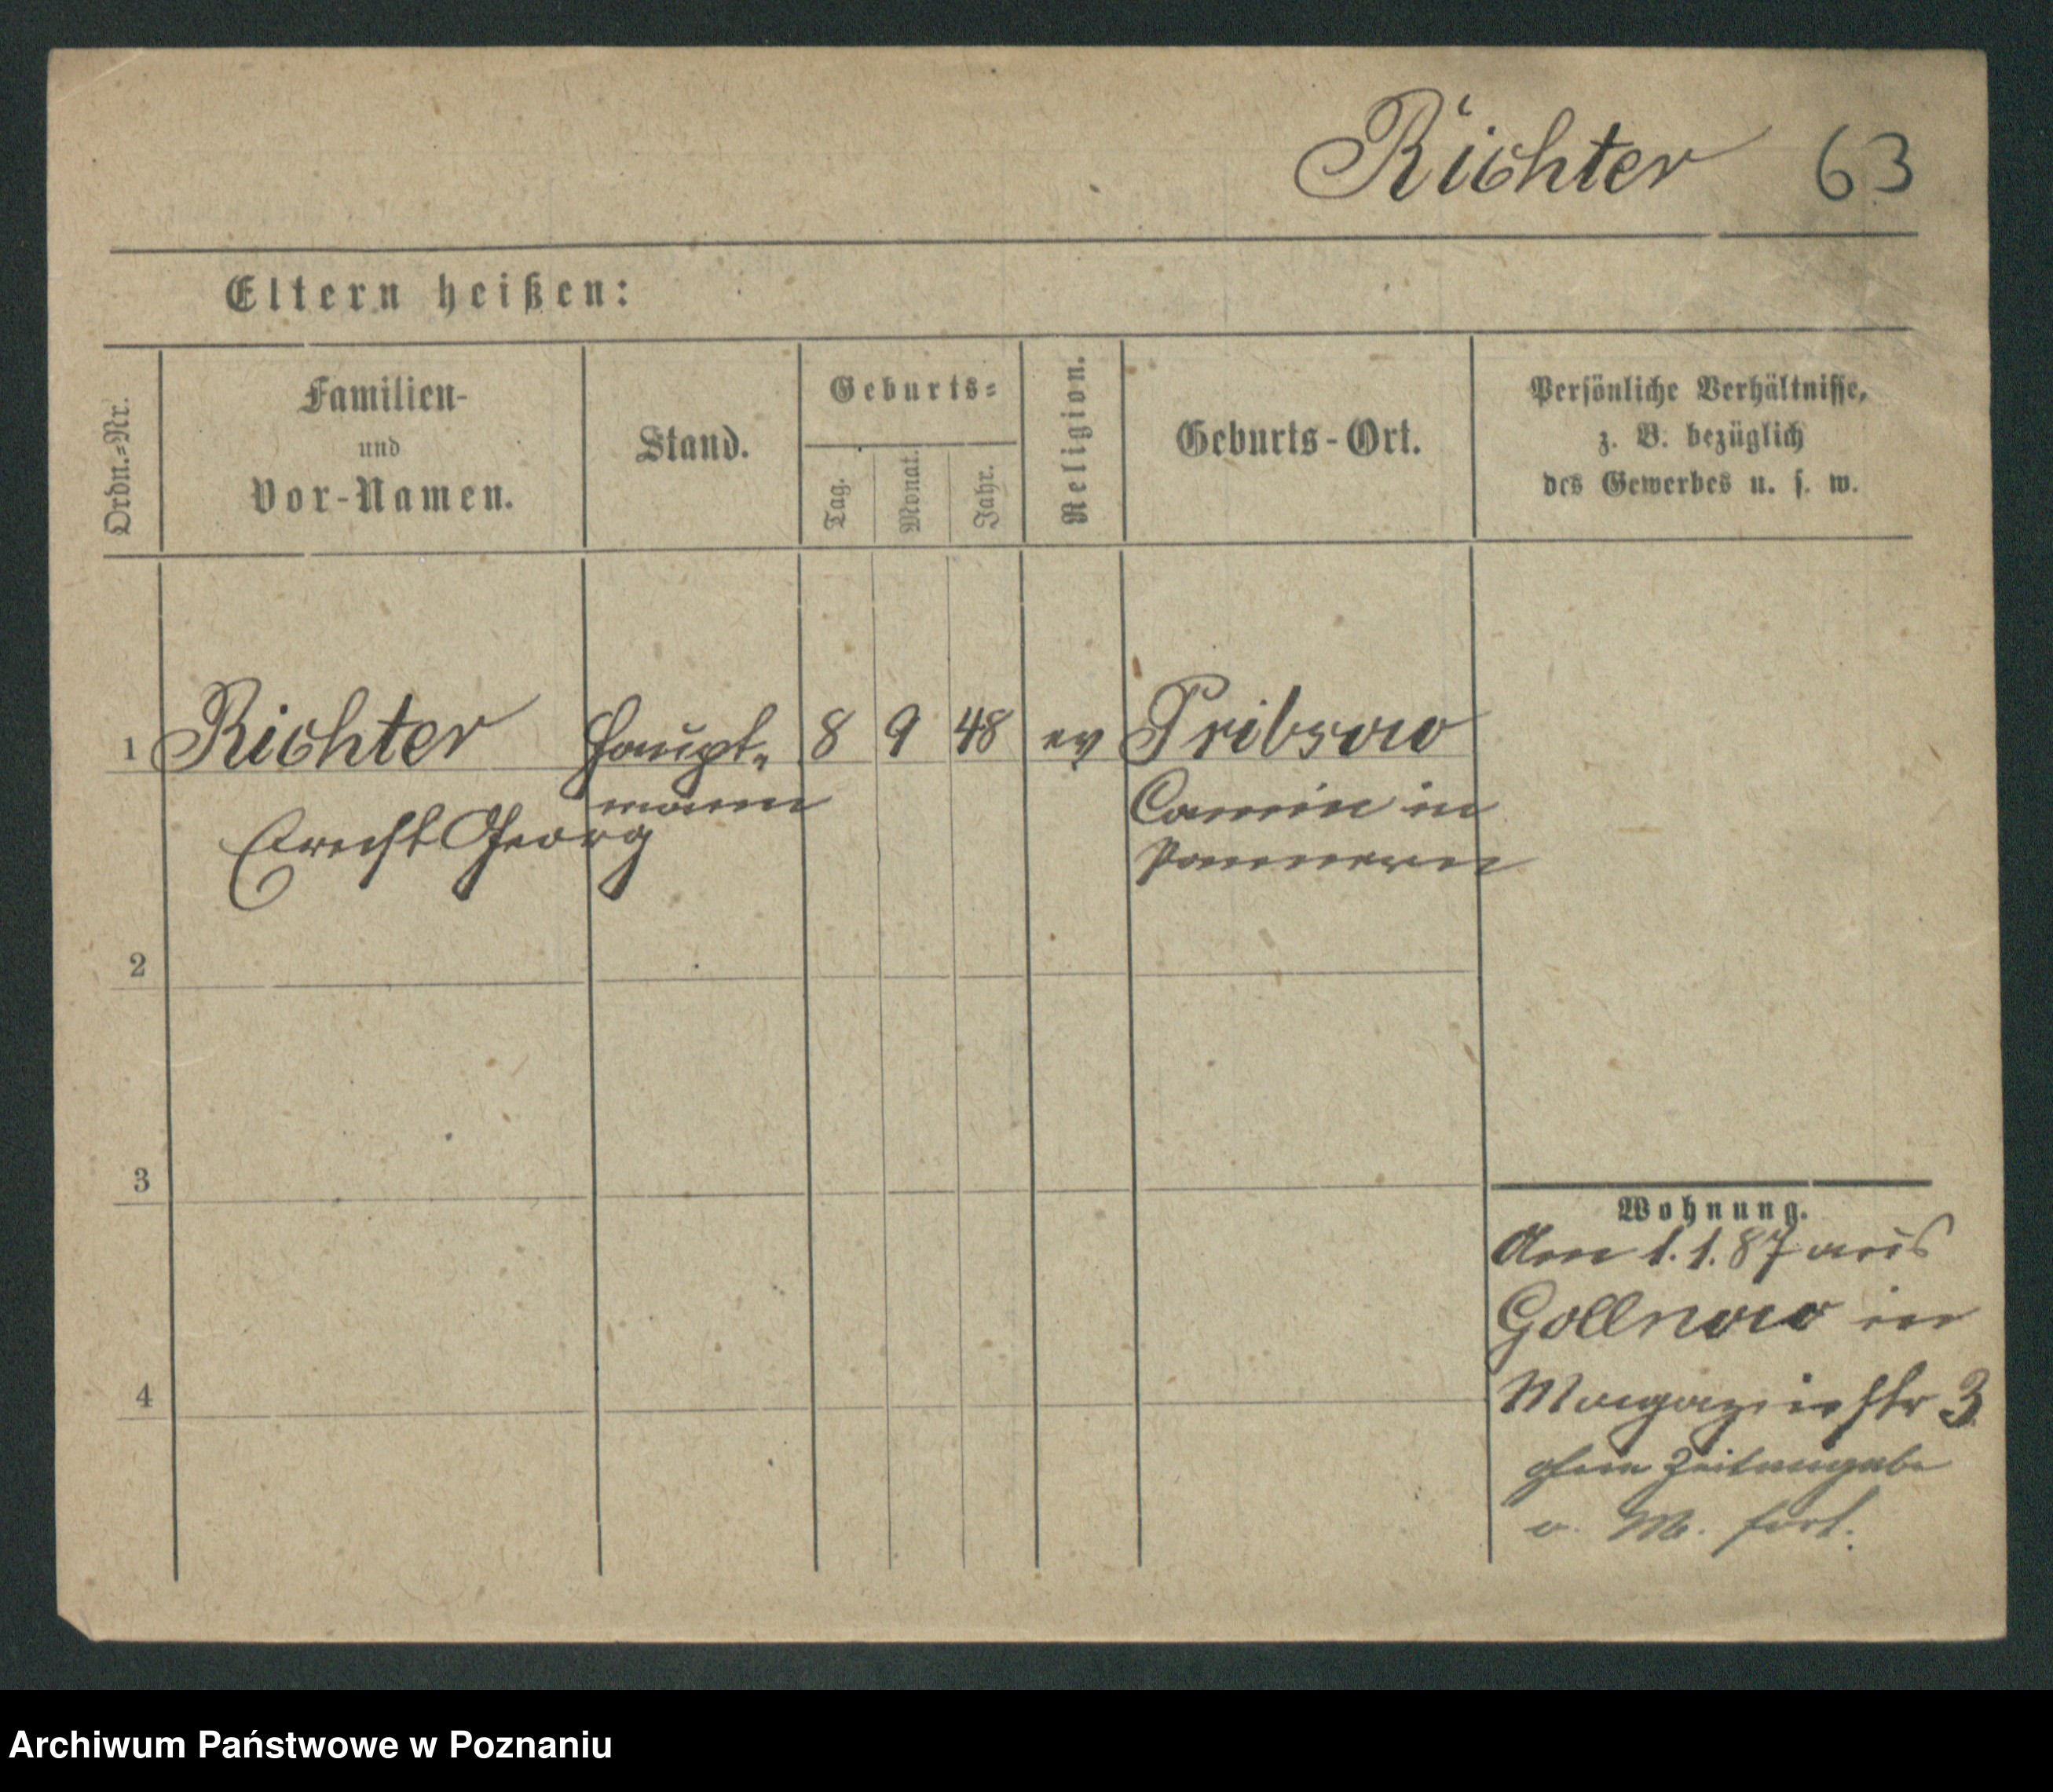 Richter 63
Eltern heißen:
Ordn.-Nr.
Familien-
und
Vor-Namen.
Stand.
Geburts-
Tag.
Monat.
Jahr.
Religion.
Geburts-Ort.
Persönliche Verhältnisse,
z. B. bezüglich
des Gewerbes u. s. w.
1 Richter Haupt- 8 9 48 ev Pribsow
mann Camin in
Ernst Georg Pommern
2
3
4
Wohnung.
Am 1.1.87 aus
Gollnow in
Magazinstr 3
ohne Zeitangabe
v. M. fort.
Archiwum Państwowe w Poznaniu